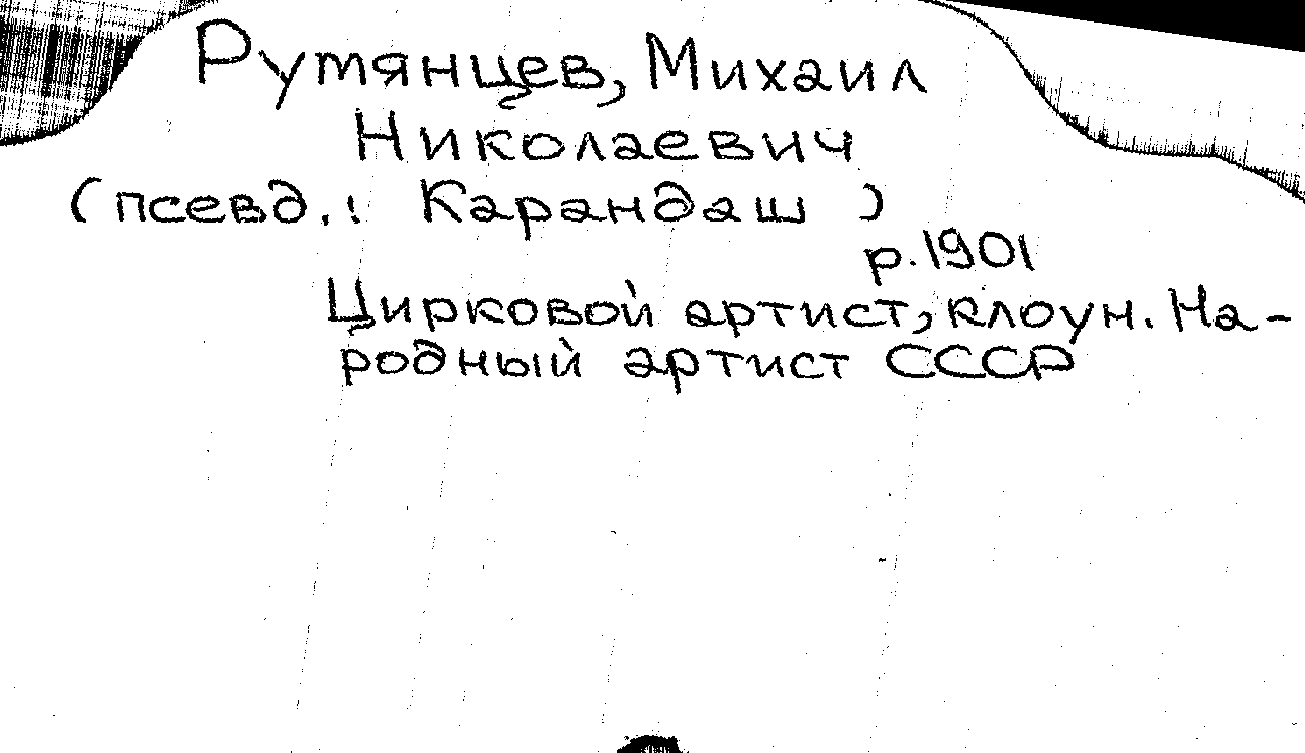 Румянцев, Михаил
Николаевич
(псевд.: Карандаш )
р. 1901
Цирковой артист, клоун. На-
родный артист СССР